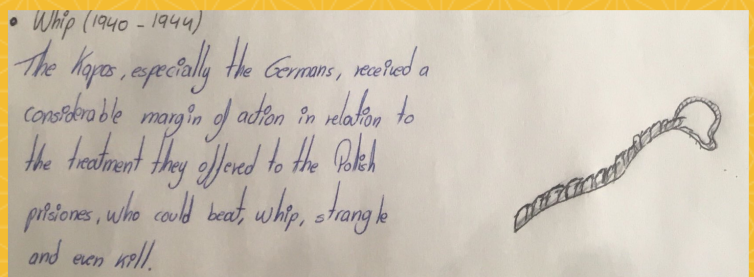 • Whip (1940 - 1944)
The Kapos, especially the Germans, received a
considerable margin of action in relation to
the treatment they offered to the Polish
prisiones, who could beat, whip, strangle
and even kill.